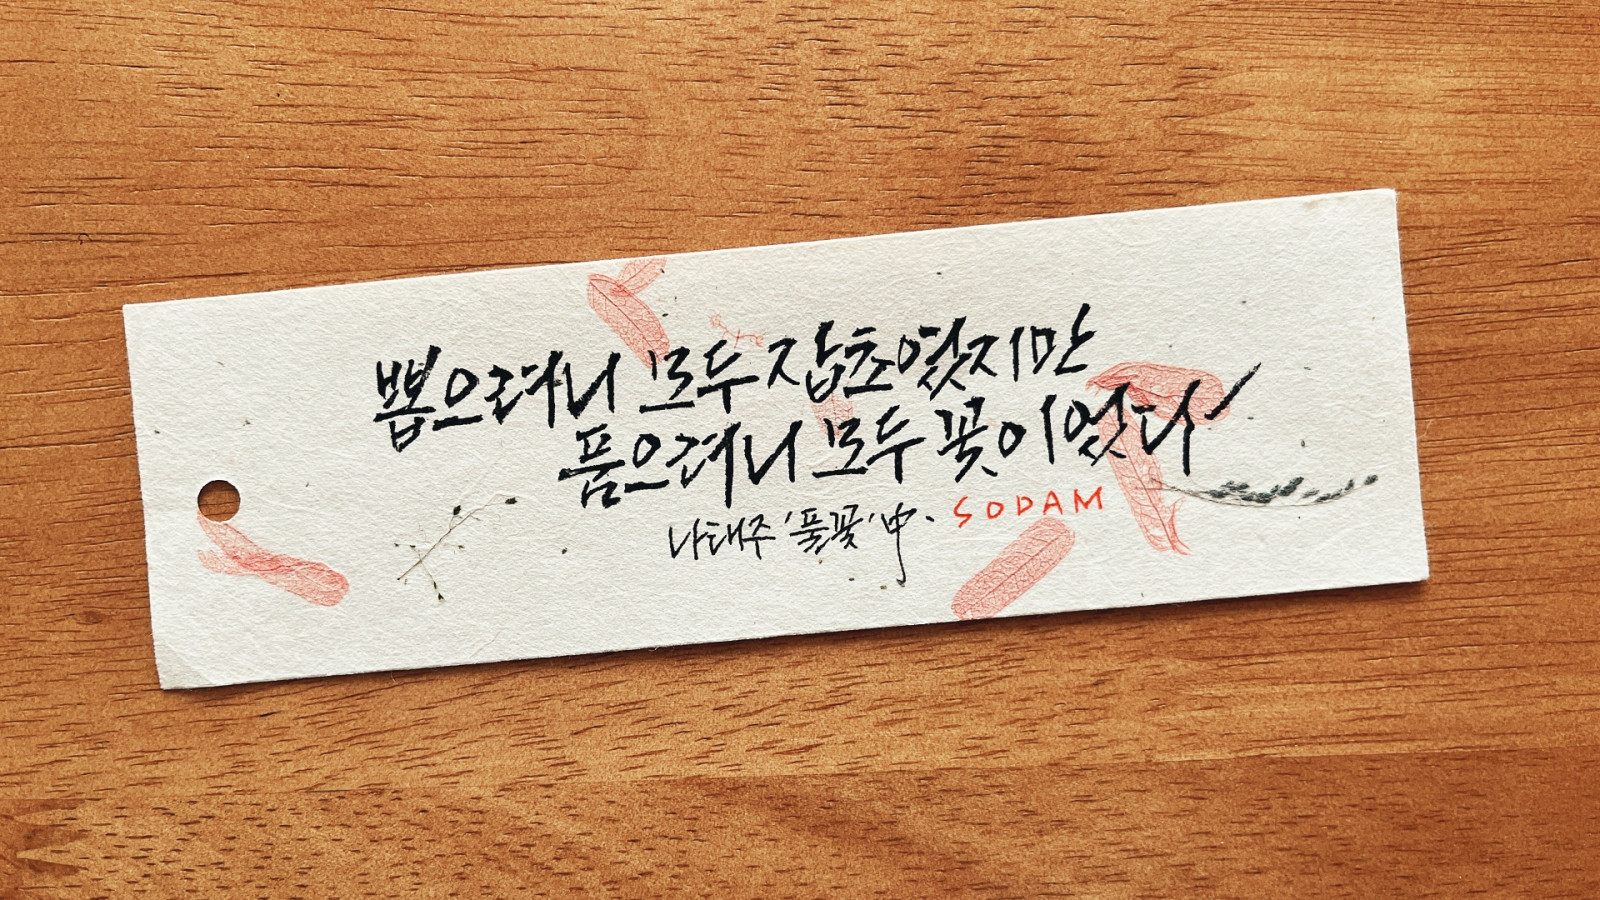 뽑으려니 모두 잡초였지만
품으려니 모두 꽃이었다
나태주 '풀꽃' 中. SODAM